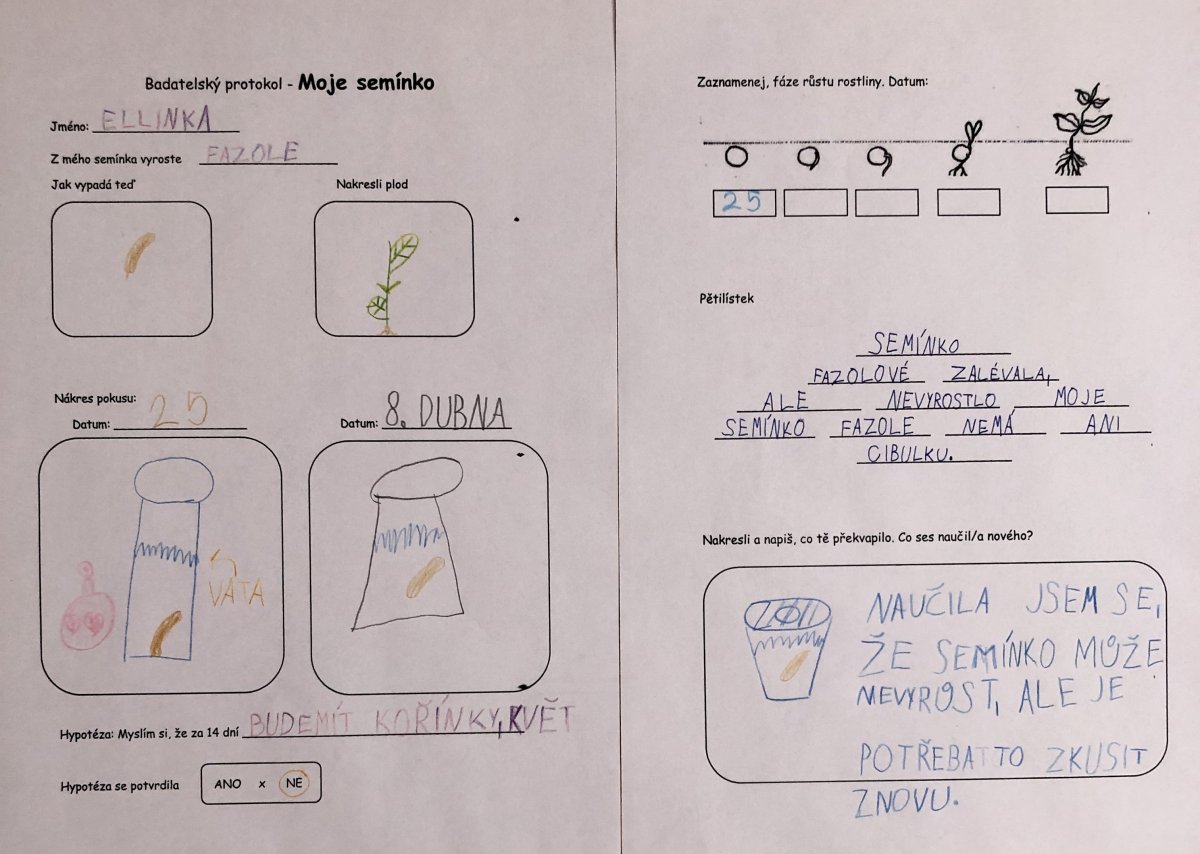 Badatelský protokol - Moje semínko
Jméno: ELLINKA
Z mého semínka vyroste FAZOLE
Jak vypadá teď Nakresli plod
Nákres pokusu:
Datum: 25 Datum: 8. DUBNA
VATA
Hypotéza: Myslím si, že za 14 dní BUDEMÍT KOŘÍNKY, KVĚT
Hypotéza se potvrdila ANO x NE
Zaznamenej, fáze růstu rostliny. Datum:
25
Pětilístek
SEMÍNKO
FAZOLOVÉ ZALÉVALA,
ALE NEVYROSTLO MOJE
SEMÍNKO FAZOLE NEMÁ ANI
CIBULKU.
Nakresli a napiš, co tě překvapilo. Co ses naučil/a nového?
NAUČILA JSEM SE,
ŽE SEMÍNKO MŮŽE
NEVYROST, ALE JE
POTŘEBA TO ZKUSIT
ZNOVU.